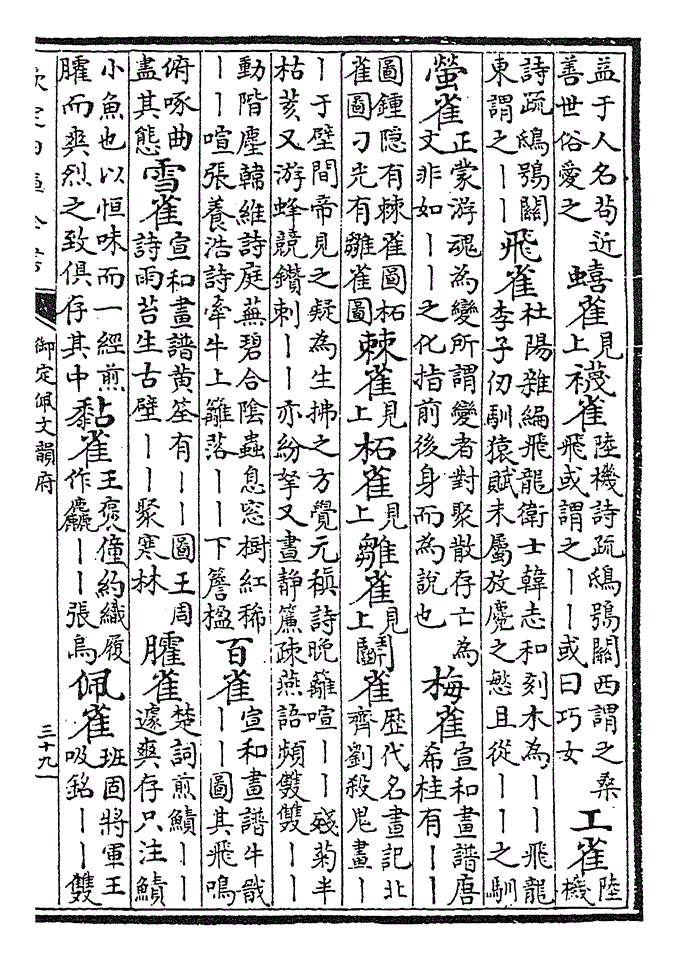 益于人名茍近善世俗愛之 蟢雀見上 襪雀陸機詩疏鴟鴞關西謂之桑飛或謂之丨丨或曰巧女 工雀陸機
詩疏鴟鴞關東謂之丨丨 飛雀杜陽雜編飛龍衛士韓志和刻木為丨丨飛龍李子仞馴猿賦未屬放麑之慜且從丨丨之馴
螢雀正蒙游魂為變所謂變者對聚散存亡為文非如丨丨之化指前後身而為說也 梅雀宣和畫譜唐希桂有丨丨
圖鍾隐有棘雀圖柘雀圖刁光有雛雀圖 棘雀見上 柘雀見上 雛雀見上 鬭雀歷代名畫記北齊劉殺鬼畫丨
丨于壁間帝見之疑為生拂之方覺元稹詩晚籬喧丨丨殘菊半枯荄又游蜂競鑽刺丨丨亦紛拏又畫静簾疎燕語頻雙雙丨丨
動階塵韓維詩庭蕪碧合陰蟲息窓樹紅稀丨丨喧張養浩詩牽牛上籬落丨丨下簷楹 百雀宣和畫譜牛戩丨丨圖其飛鳴
俯啄曲盡其態 雪雀宣和畫譜黄筌有丨丨圖王周詩雨苔生古壁丨丨聚寒林 臛雀楚詞煎鰿丨丨遽爽存只注鰿
小魚也以恒味而一經煎臛而爽烈之致俱存其中 黏雀王褒僮約織履作麤丨丨張烏 佩雀班固將軍王吸銘丨丨雙
欽定四庫全書 御定佩文韻府 三十九